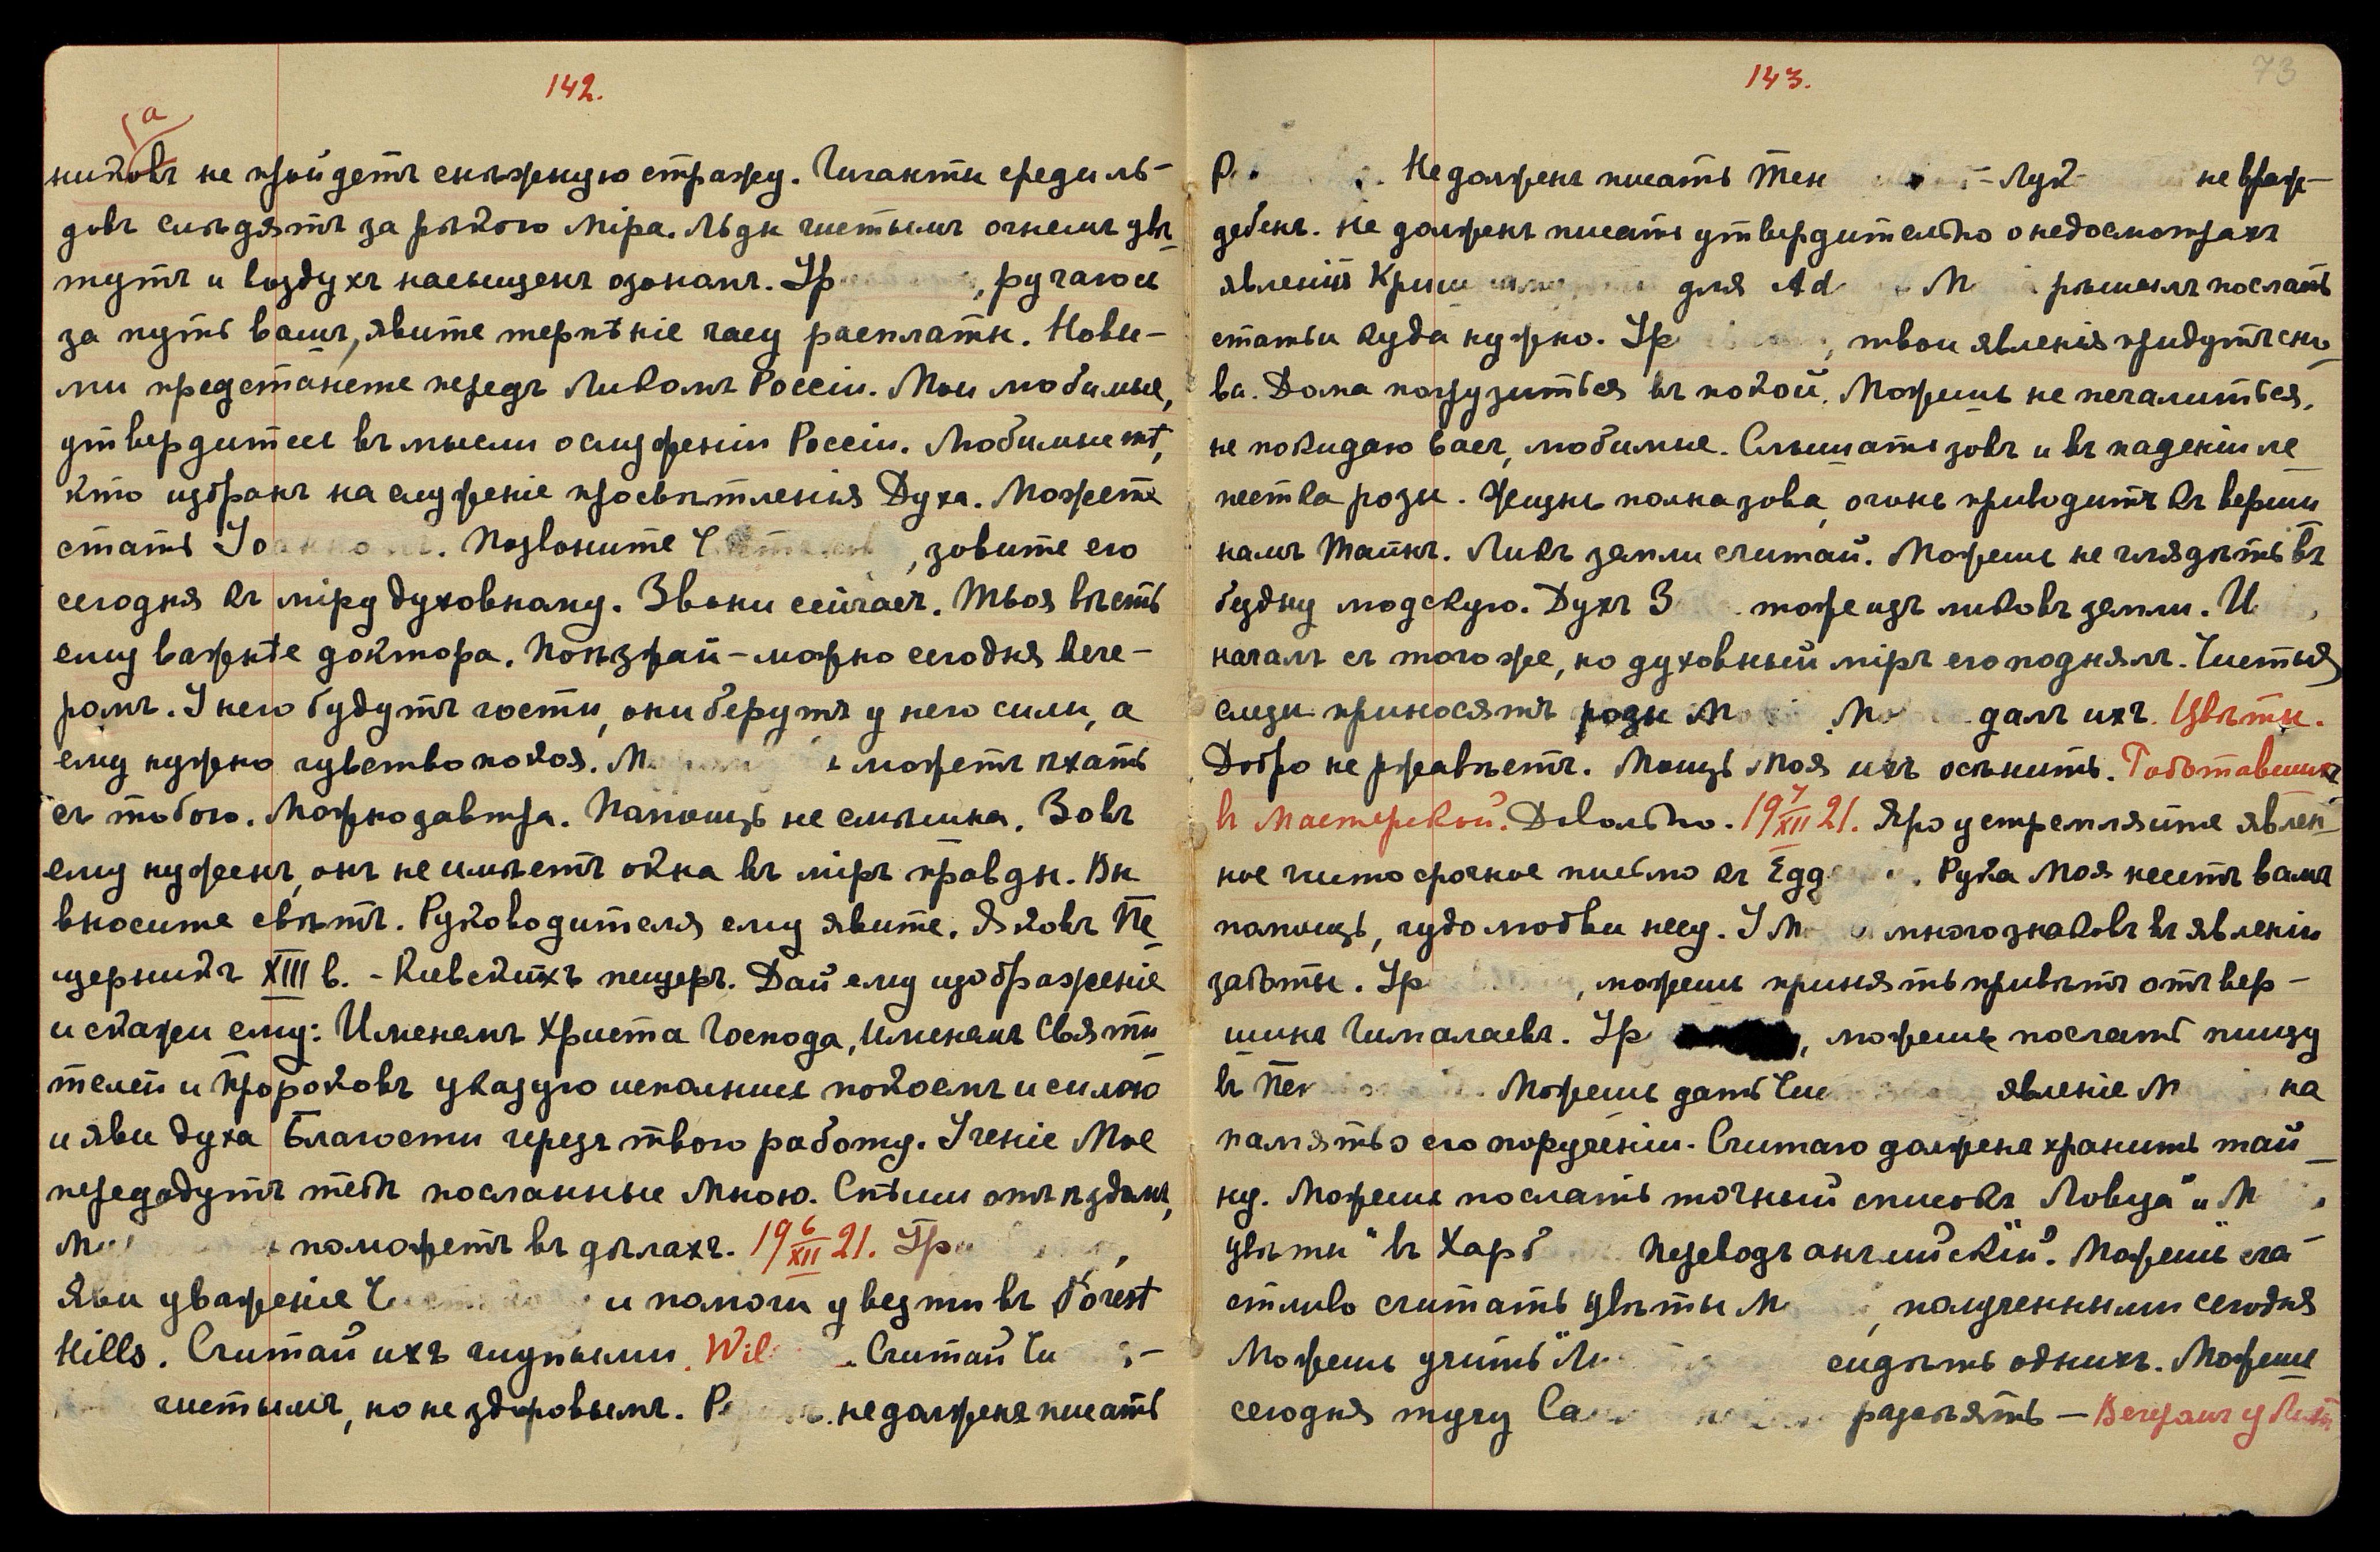 142.
а
никовъ не пройдетъ снѣжную стражу. Гиганты среди ль-
довъ слѣдятъ за рѣкою міра. Льды чистымъ огнемъ цвѣ-
тутъ и воздухъ насыщенъ озономъ. Ур , ручаюсь
за путь вашъ, явите терпѣніе часу расплаты. Новы-
ми предстанете передъ Ликомъ Россіи. Мои любимые,
утвердитесь въ мысли о служеніи Россіи. Любимые тѣ,
кто избранъ на служеніе просвѣтленія Духа. Можетъ
стать . Позвоните , зовите его
сегодня къ міру духовному. Звони сейчасъ. Твоя вѣсть
ему важнѣе доктора. Попѣзжай - можно сегодня вече-
ромъ. У него будутъ гости, они берутъ у него силы, а
ему нужно чувство покоя. М можетъ ѣхать
съ тобою. Можно завтра. Помощь не слышна. Зовъ
ему нуженъ, онъ не имѣетъ окна въ міръ правды. Вы
вносите свѣтъ. Руководителя ему явите. Яковъ Пе
щерникъ XIII в. - Кіевскихъ пещеръ. Дай ему изображеніе
и скажи ему: Именемъ Христа Господа, именемъ Святи
телей и Пророковъ указую исполнись покоемъ и силою
и яви духа Благости черезъ твою работу. Ученіе Мое
передадутъ тебѣ посланные Мною. Спѣши отъѣздомъ,
М поможетъ въ дѣлахъ. 19 6/XII 21. Ур ,
яви уваженіе и помоги увезти въ Forest
Hills. Считай ихъ глупыми. Wil . Считай Чи -
чистымъ, но не здоровымъ. Р не долженъ писать
143.
73
Р . Не долженъ писать Тен - Лук не враж-
дебенъ. Не долженъ писать утвердительно о недосмотрахъ
явленій Криш для Ad М рѣшилъ послать
статьи куда нужно. Ур , твои явленія придутъ сно
ва. Дома погрузиться въ покой. Можешь не печалиться,
не покидаю васъ, любимые. Слышать зовъ и въ паденіи ле
пестка розы. Жизнь полна зова, огонь приводитъ къ верши
намъ Тайнъ. Ликъ земли считай. Можешь не глядѣть въ
бездну людскую. Духъ З тоже изъ ликовъ земли. И
началъ съ того же, но духовный міръ его поднялъ. Чистыя
слезы приносятъ розы М . М далъ ихъ. Цвѣты.
Добро не ржавѣетъ. Мощь Моя ихъ осѣнить. Работавшихъ
въ Мастерской. Довольно. 19 7/XII 21. Яро устремляйте явлен
ное чисто срочное письмо къ Едд . Рука Моя неситъ вамъ
помощь, чудо любви несу. У М много знаковъ въ явленіи
заботы. Ур , можешь принять привѣтъ отъ вер-
шинъ Гималаевъ. Ур , можешь послать пищу
въ Пен Можешь дать Чи явленіе М на
память о его порученіи. Считаю долженъ хранить тай
ну. Можешь послать точный списокъ Ловца" и М
цвѣты" въ Харб Переводъ англійскій". Можешь сча-
стливо считать цвѣты М , полученными сегодня
Можешь учить сидѣть однихъ. Можешь
сегодня тучу разсѣять — Вечеромъ у